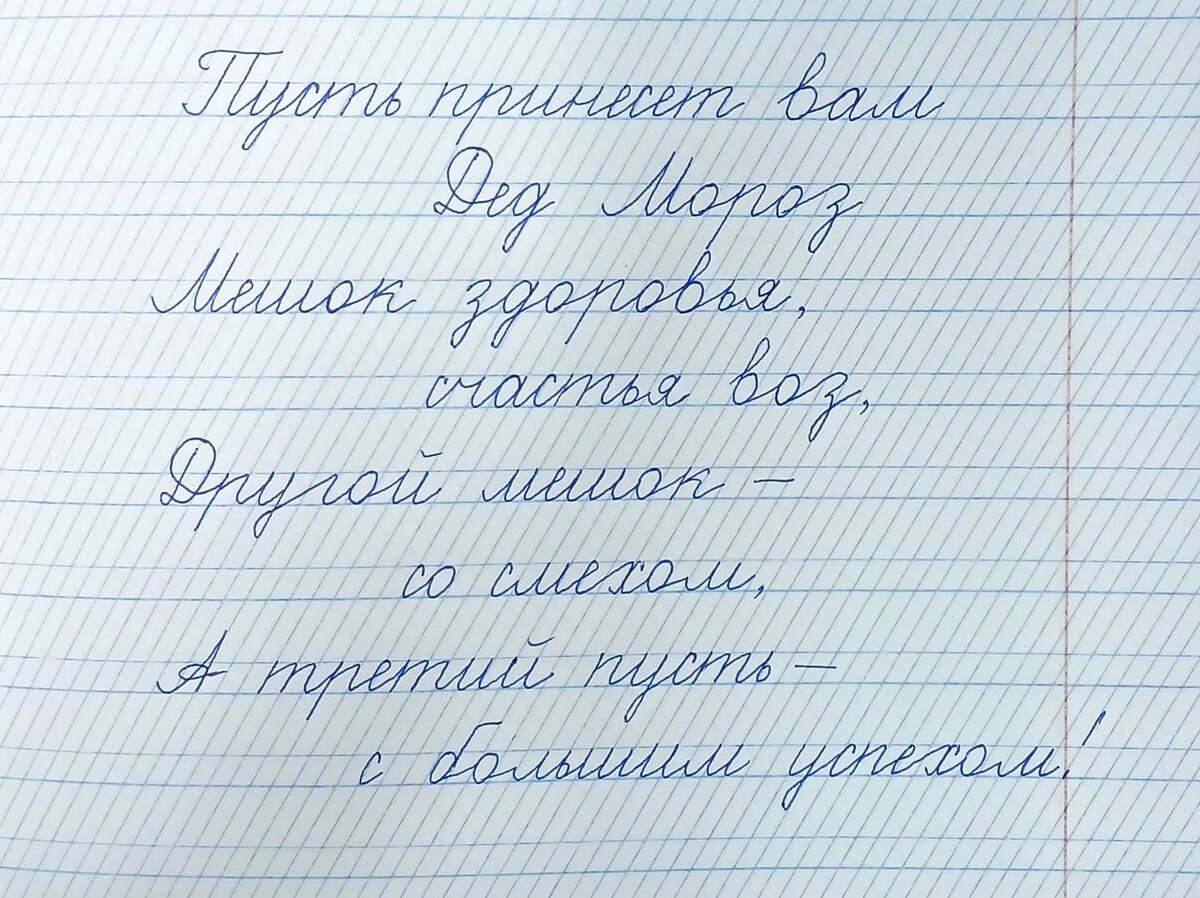 Пусть принесет вам
Дед Мороз
Мешок здоровья,
счастья воз,
Другой мешок –
со смехом,
А третий пусть –
с большим успехом!